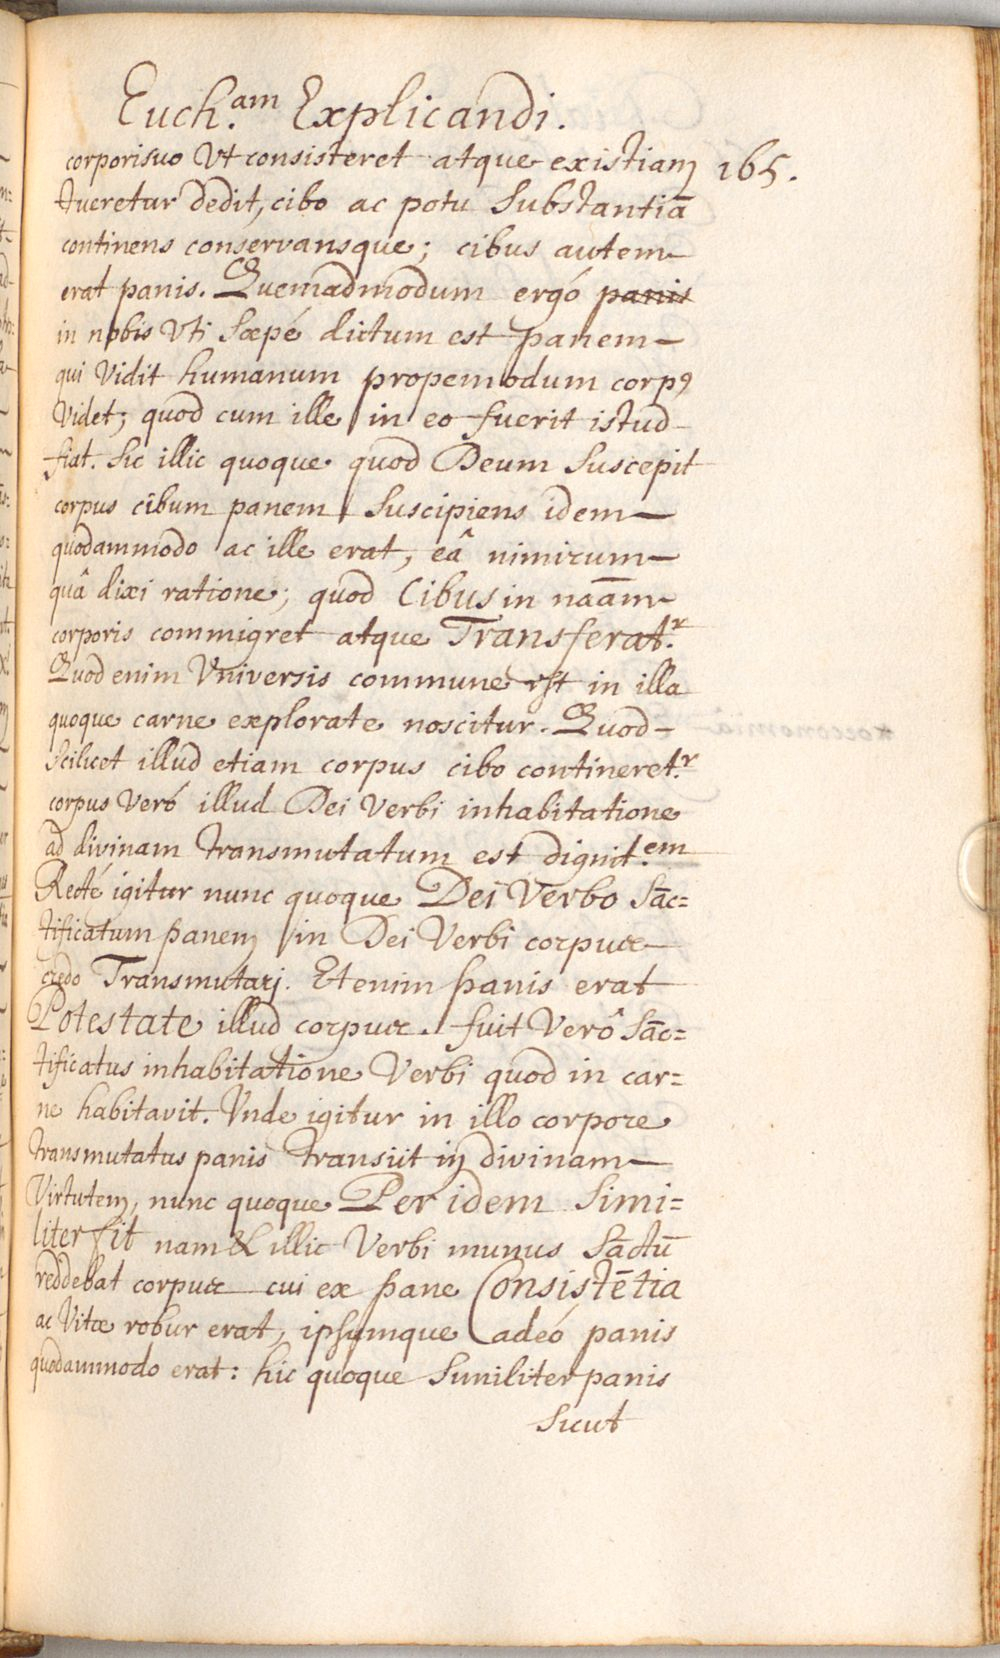 Euch.am Explicandi.
corporisuo Vt consisteret atque existiam 165.
tueretur dedit, cibo ac potu Substantiā
continens conservansque; cibus autem
erat panis. Quemadmodum ergó panis
in nobis Vti Sæpé dictum est panem
qui Vidit humanum propemodum corp9
Videt; quod cum ille in eo fuerit istud
fiat. Sic illic quoque quod Deum Suscepit
corpus cibum panem Suscipiens idem
quodammodo ac ille erat, eâ nimirum
quâ dixi ratione; quod Cibus in naām
corporis commigret atque Transferat.r
Quod enim Vniversis commune est in illa
quoque carne explorate noscitur. Quod
Scilicet illud etiam corpus cibo contineret.r
corpus Veró illud Dei Verbi inhabitatione
ad divinam transmutatum est dignit.em
Recté igitur nunc quoque Dei Verbo Sāc=
tificatum panem in Dei Verbi corpus
credo Transmutari. Etenim panis erat
Potestate illud corpus. fuit Verô Sāc=
tificatus inhabitatione Verbi quod in car=
ne habitavit. Vnde igitur in illo corpore
transmutatus panis transiit in divinam
Virtutem, nunc quoque Per idem Simi=
liter fit nam & illic Verbi munus Sāctū
reddebat corpus cui ex pane Consistētia
ac Vitæ robur erat, ipsumque adeó panis
quodammodo erat: hic quoque Similiter panis
Sicut